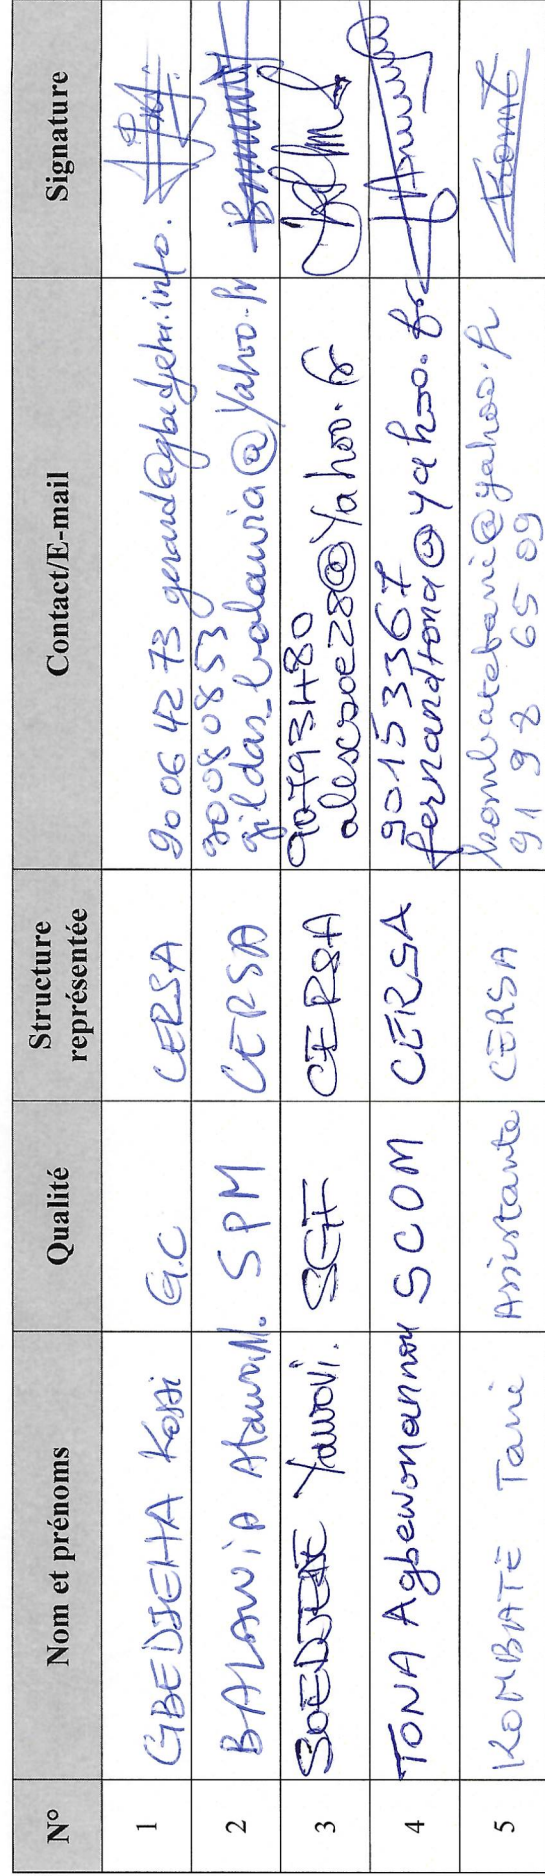 N° Nom et prénoms Qualité Structure représentée Contact/E-mail Signature
1 GBEDJEHA Kossi G.C CERSA 90 06 42 73 gerard@gbedjeha.info.
2 BALAWIA Atawa M. SPM CERSA 90080853
gildas_balawia@yahoo.fr
3 SOEDJEDE Yawovi. SGF CERSA 90793480
alexsoe28@yahoo.fr
4 TONA Agbewonannou SCOM CERSA 90153367
fernandtona@yahoo.fr
5 KOMBATE Tani Assistante CERSA kombatetani@yahoo.fr
91 98 65 09